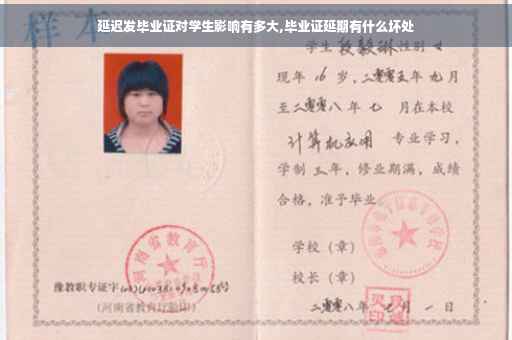 延迟发毕业证对学生影响有多大,毕业证延期有什么坏处
样本
学生 段毅琳 性别 女
现年 16 岁,二零零五年 九月
至二零零八年 七 月在本校
计算机应用 专业学习,
学制 三 年,修业期满,成绩
合格,准予毕业
学校(章)
校长(章)
二零零八年 月 一 日
河南省教育厅
豫教职专证字
(河南省教育厅验印)